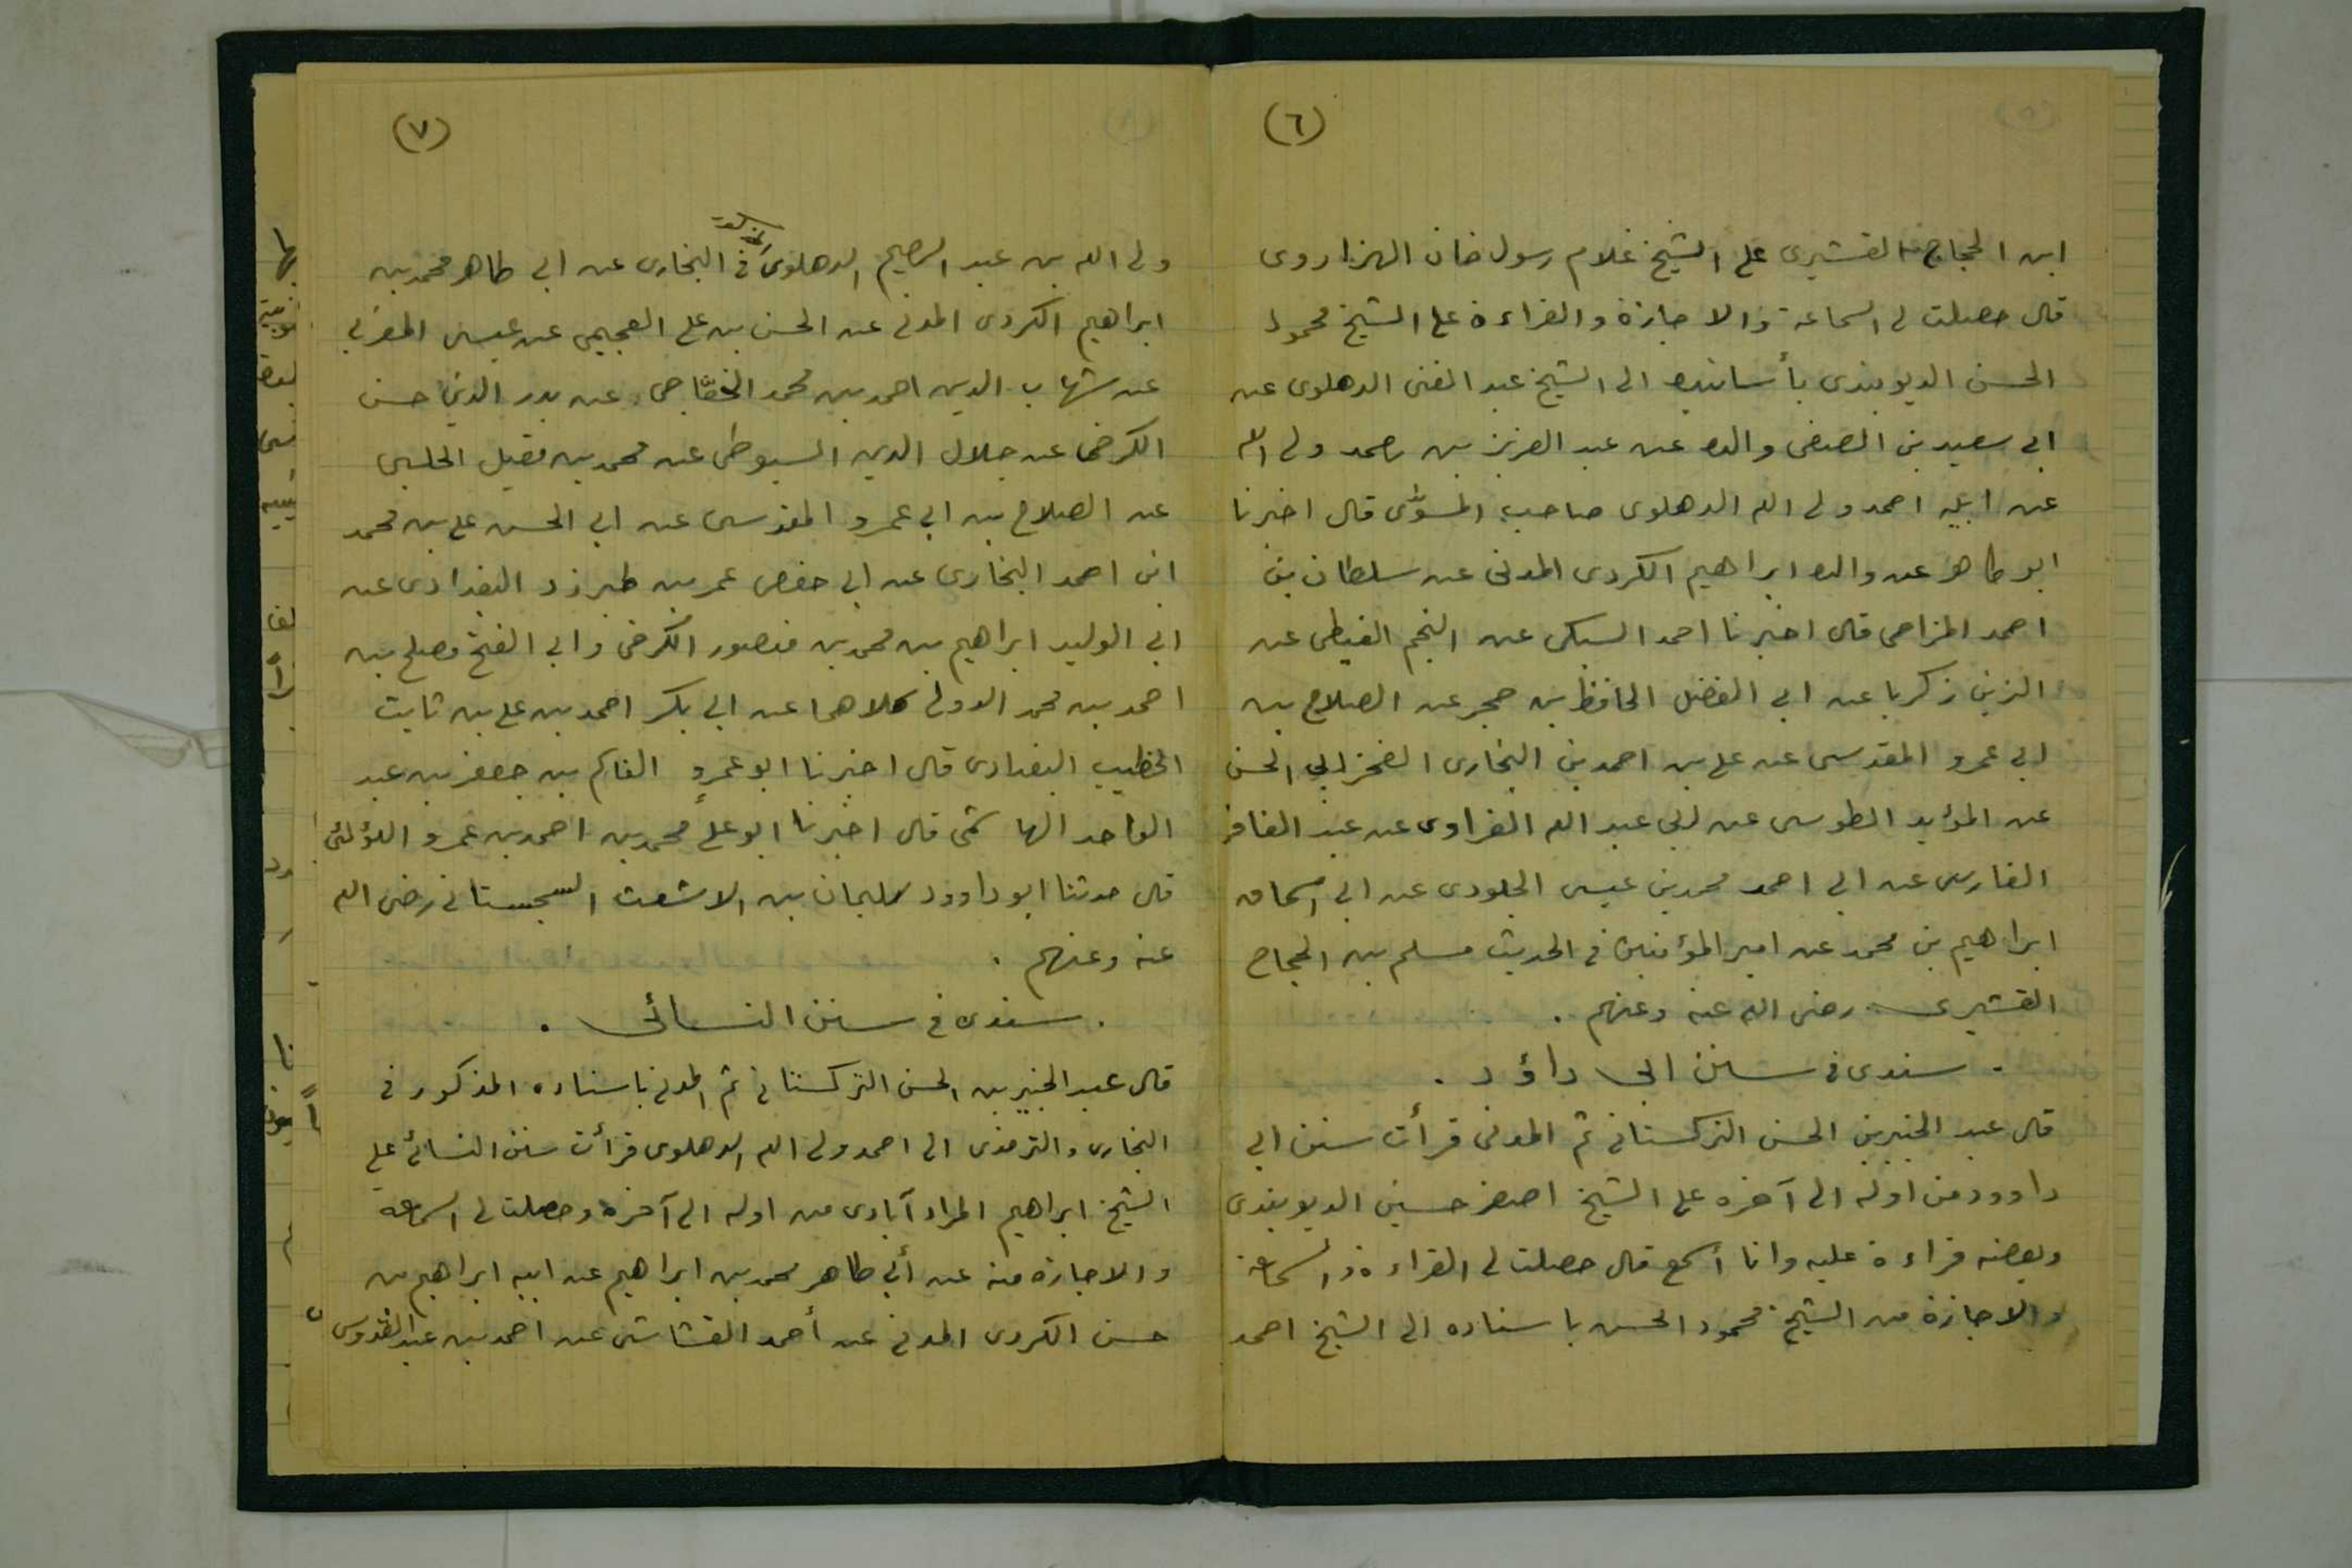 (٦)
ابن الحجاج القشيرى على الشيخ غلام رسول خان الهزاروى
قال حصلت لى السماعة والاجازة والقراءة على الشيخ محمود
الحسن الديوبندى بأسانيده الى الشيخ عبد الغنى الدهلوى عن
ابى سعيد بن الصفى والده عن عبد العزيز بن احمد ولى الله
عن ابيه احمد ولى الله الدهلوى صاحب المسوّى قال اخبرنا
ابو طاهر عن والده ابراهيم الكردى المدنى عن سلطان بن
احمد المزاحى قال اخبرنا احمد السبكى عن النجم الغيطى عن
الزين زكريا عن ابى الفضل الحافظ بن حجر عن الصلاح بن
ابى عمرو المقدسى عن على بن احمد بن البخارى الفخر ابى الحسن
عن المؤيد الطوسى عن ابى عبد الله الفراوى عن عبد الغافر
الفارسى عن ابى احمد محمد بن عيسى الجلودى عن ابى اسحاق
ابراهيم بن محمد عن امير المؤمنين فى الحديث مسلم بن الحجاج
القشيرى رضى الله عنه وعنهم .
. سندى فى سنن ابى داؤد .
قال عبد الخبير بن الحسن التركستانى ثم المدنى قرأت سنن ابى
داوود من اوله الى آخره على الشيخ اصغر حسين الديوبندى
وبعضه قراءة عليه وانا اسمع قال حصلت لى القراءة والسماعة
والاجازة من الشيخ محمود الحسن باسناده الى الشيخ احمد
(٧)
ولى الله بن عبد الرحيم الدهلوى فى البخارى عن ابى طاهر محمد بن
ابراهيم الكردى المدنى عن الحسن بن على العجيمى عن عيسى المغربى
عن شهاب الدين احمد بن محمد الخفّاجى عن بدر الدين حسن
الكرخى عن جلال الدين السيوطى عن محمد بن مقبل الحلبى
عن الصلاح بن ابى عمرو المقدسى عن ابى الحسن على بن محمد
ابن احمد البخارى عن ابى حفص عمر بن طبرزد البغدادى عن
ابى الوليد ابراهيم بن محمد بن منصور الكرخى وابى الفتح مصلح بن
احمد بن محمد الدولى كلاهما عن ابى بكر احمد بن على بن ثابت
الخطيب البغدادى قال اخبرنا ابو عمرو القاسم بن جعفر بن عبد
الواحد الهاشمى قال اخبرنا ابو على محمد بن احمد بن عمرو اللؤلئى
قال حدثنا ابو داوود سليمان بن الاشعث السجستانى رضى الله
عنه وعنهم .
. سندى فى سنن النسائى .
قال عبد الخبير بن الحسن التركستانى ثم المدنى باسناده المذكور فى
البخارى والترمذى الى احمد ولى الله الدهلوى قرأت سنن النسائى على
الشيخ ابراهيم المراد آبادى من اوله الى آخره وحصلت لى السماعة
والاجازة منه عن أبى طاهر محمد بن ابراهيم عن ابيه ابراهيم بن
حسن الكردى المدنى عن أحمد القشاشى عن احمد بن عبد القدوس